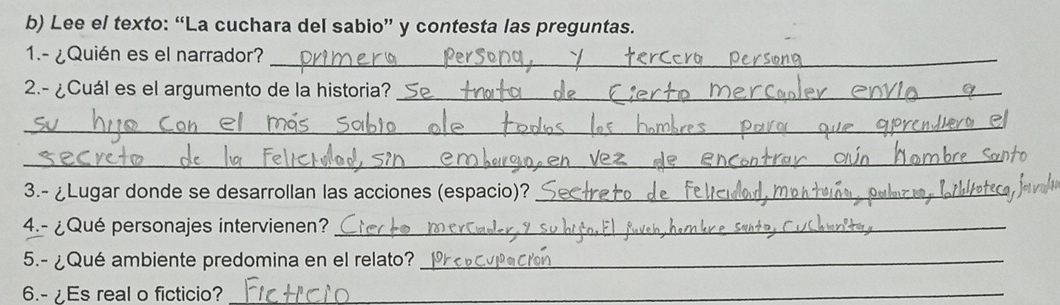 b) Lee el texto: “La cuchara del sabio” y contesta las preguntas.
1.- ¿Quién es el narrador? primera persona, y tercera persona
2.- ¿Cuál es el argumento de la historia? Se trata de cierto mercader envio a
su hijo con el más sabio de todos los hombres para que aprendiera el
secreto de la Felicidad, sin embargo, en vez de encontrar aún hombre santo
3.- ¿Lugar donde se desarrollan las acciones (espacio)? Sectreto de Felicidad, montaña, palacio, biblioteca,
4.- ¿Qué personajes intervienen? Cierto mercader, y su hijo. El joven, hombre santo, cucharita,
5.- ¿Qué ambiente predomina en el relato? Preocupación
6.- ¿Es real o ficticio? Ficticio